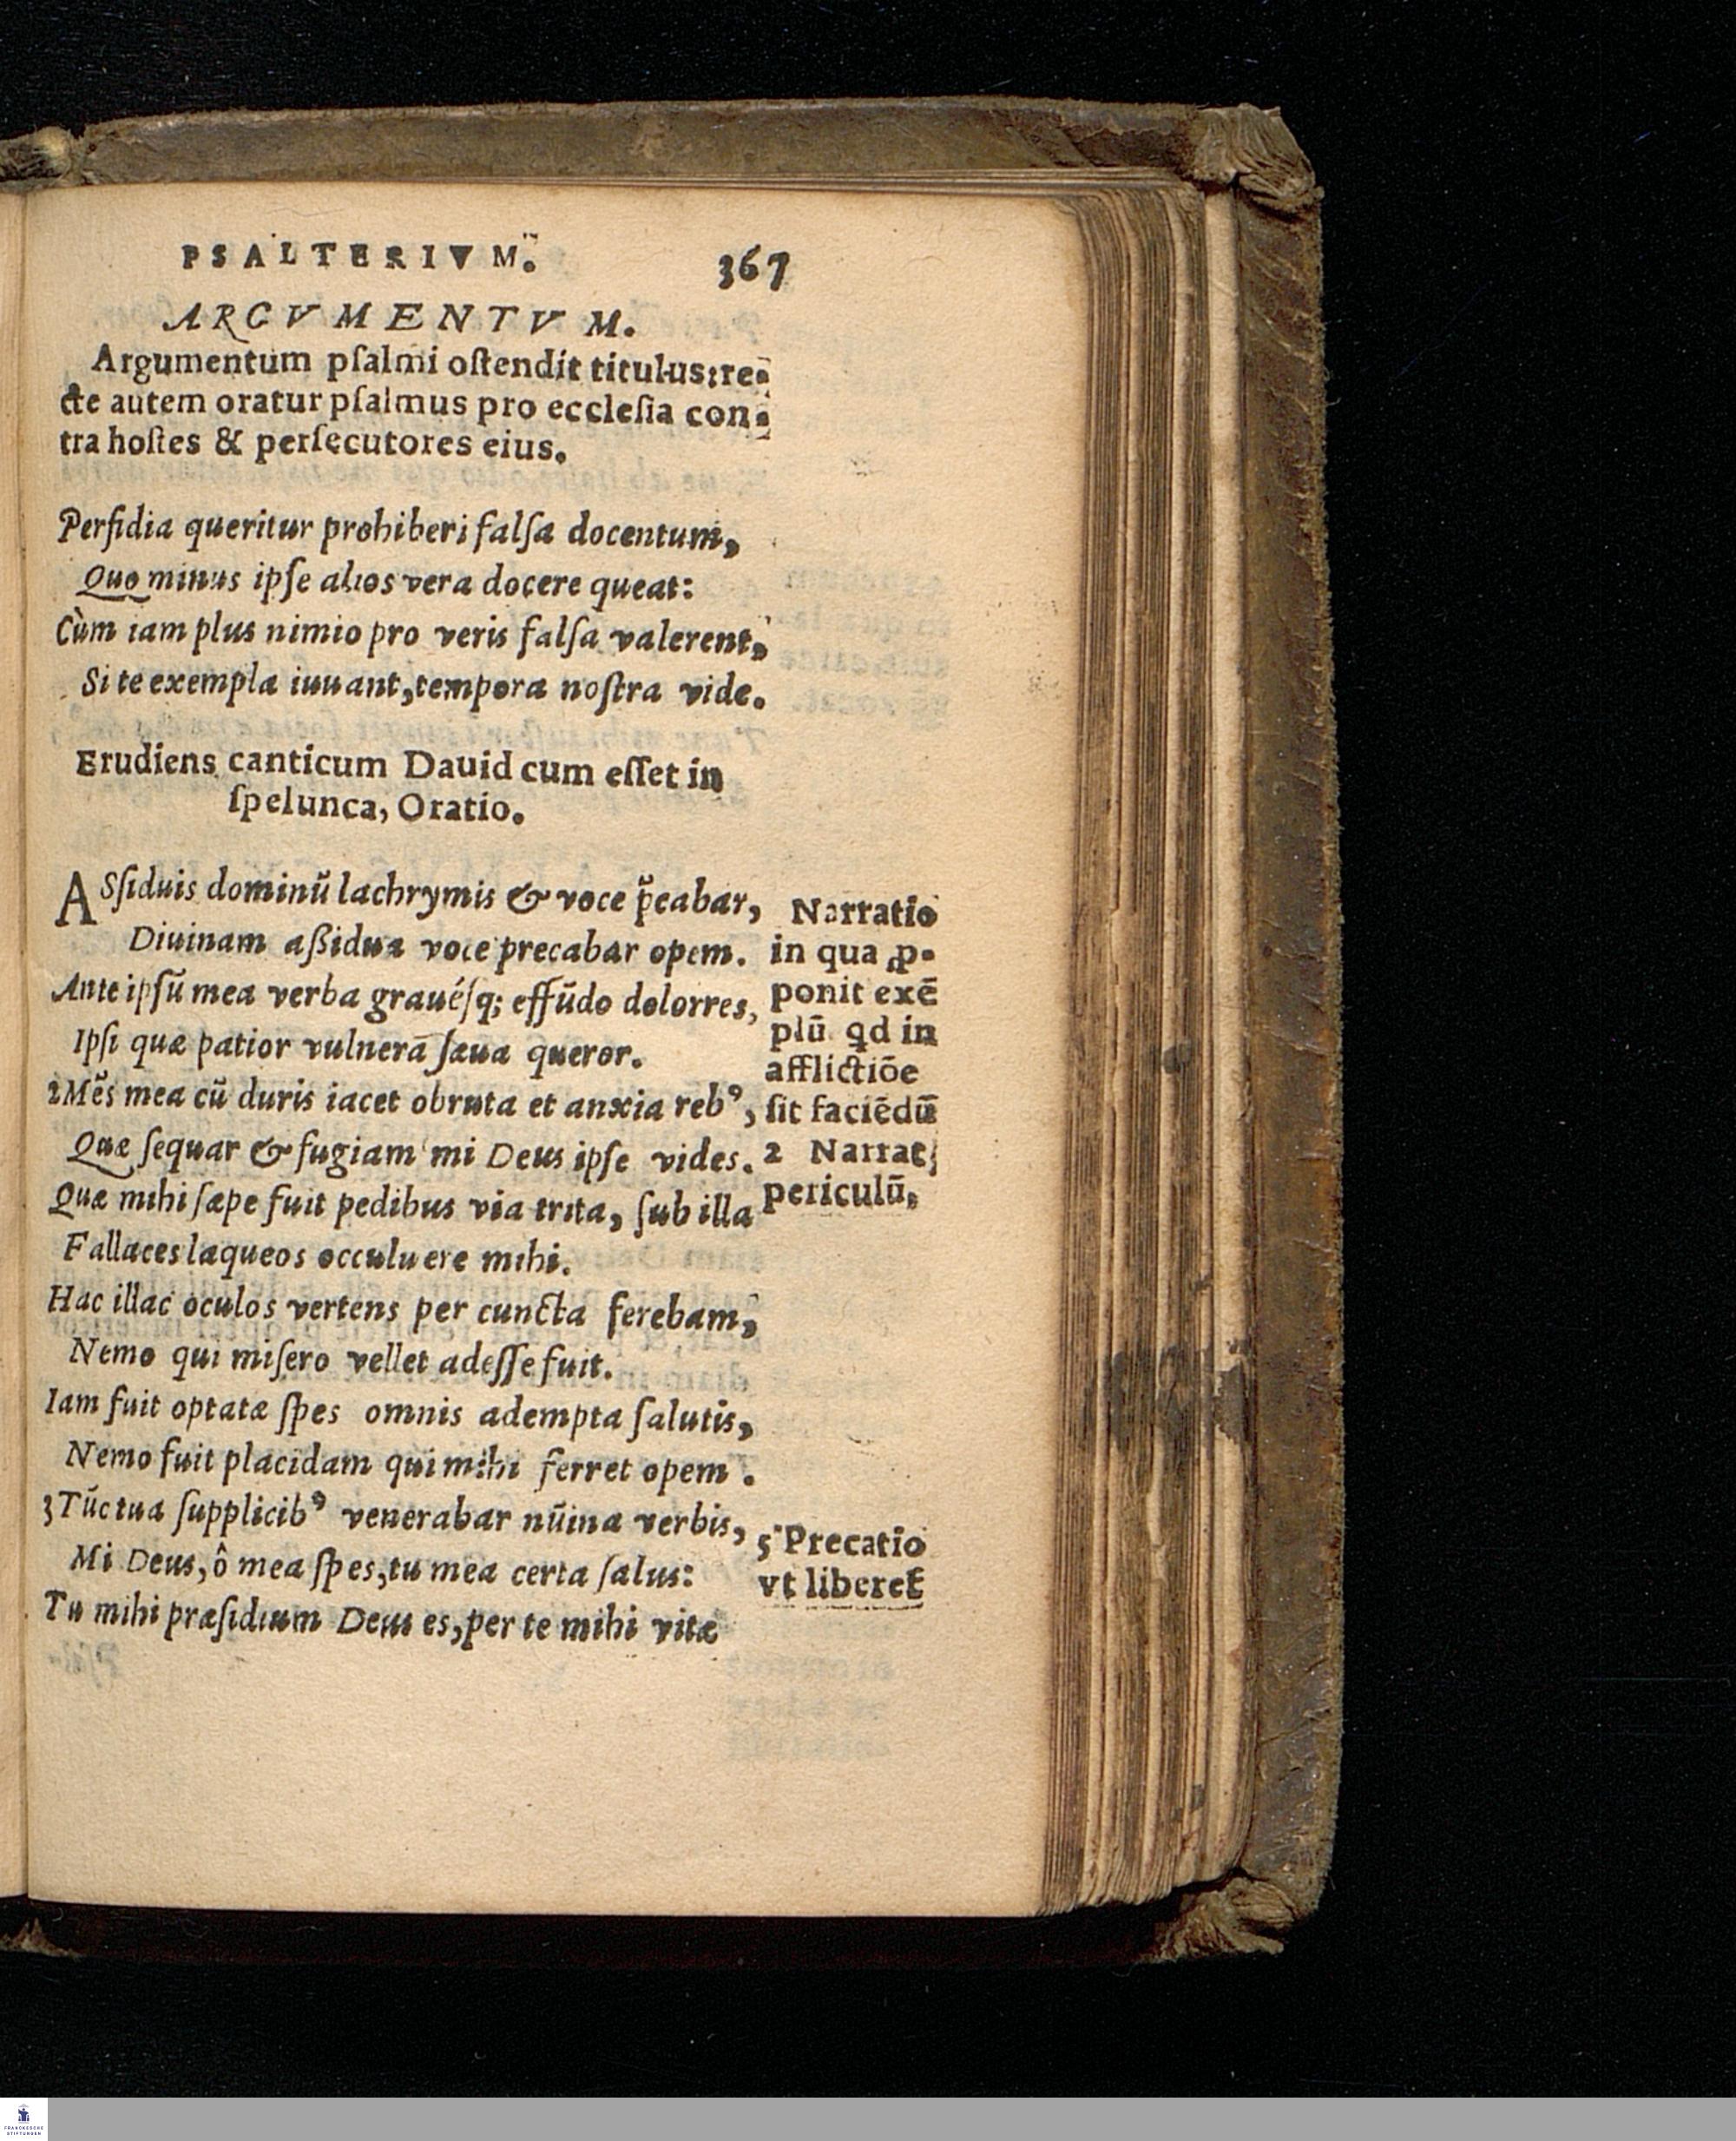 PSALTERIVM. 367
ARGVMENTVM.
Argumentum pſalmi oſtendit titulus: re-
cte autem oratur pſalmus pro eccleſia con-
tra hoſtes & perſecutores eius.
Perfidia queritur prohiberi falſa docentum,
Quo minus ipſe alios vera docere queat:
Cùm iam plus nimio pro veris falſa valerent,
Si te exempla iuuant, tempora noſtra vide.
Erudiens canticum Dauid cum eſſet in
ſpelunca, Oratio.
ASſiduis dominũ lachrymis & voce p̃cabar,
Diuinam aßidua voce precabar opem.
Ante ipſũ mea verba grauéſq; effũdo dolorres,
Ipſi quæ patior vulnerā ſæua queror.
2 Mẽs mea cũ duris iacet obruta et anxia rebꝰ,
Quæ ſequar & fugiam mi Deus ipſe vides.
Quæ mihi ſæpe fuit pedibus via trita, ſub illa
Fallaces laqueos occuluere mihi.
Hac illac oculos vertens per cuncta ferebam,
Nemo qui miſero vellet adeſſe fuit.
Iam fuit optatæ ſpes omnis adempta ſalutis,
Nemo fuit placidam qui mihi ferret opem.
3 Tũc tua ſupplicibꝰ venerabar nũina verbis,
Mi Deus, ô mea ſpes, tu mea certa ſalus:
Tu mihi præſidium Deus es, per te mihi vitæ
Narratio
in qua ꝓ-
ponit exẽ
plũ qd in
afflictiõe
ſit faciẽdũ
2 Narrat
periculũ.
5 Precatio
vt liberet
FRANCKESCHE
STIFTUNGEN